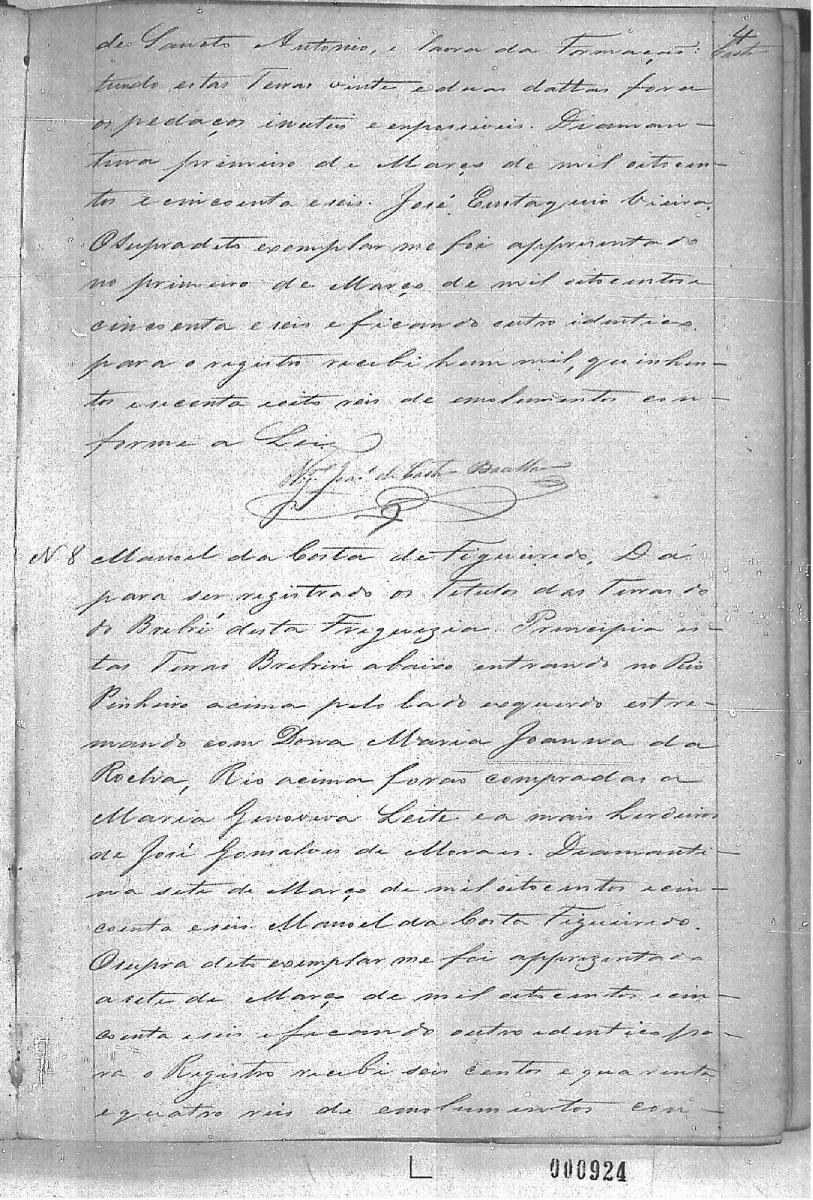 4
de Sancto Antonio, e lavra da Formação:
tendo estas Terras vinte e duas dattas fora
os pedaços inuteis e empossiveis. Diaman-
tina primeiro de Março de mil oitocen-
tos e cincoenta e seis. José Eustaquio Vieira.
O Supra dito exemplar me foi appresentado
no primeiro de Março de mil oitocentos e
cincoenta e seis e ficando outro identico
para o registro recebi hum mil, quinhen-
tos e secenta e oito reis de emolumentos con-
forme a Lei
de Castro
N 8 Manoel da Costa de Figueiredo, Dá
para ser registrado os Titulos das Terras do
do Bribri desta Freguezia. Principia es-
tas Terras Bribri abaixo entrando no Rio
Pinheiro acima pelo lado esquerdo estre-
mando com Dona Maria Joanna da
Rocha, Rio acima forão compradas a
Maria Genoveva Leite e a mais herdeiros
de José Gonsalves de Moraes. Diamanti-
na sete de Março de mil oitocentos e cin-
coenta e seis. Manoel da Costa Figueiredo.
O supra dito exemplar me foi apprezentado
a sete de Março de mil oitocentos e cin-
coenta e seis e ficando outro identico pa-
ra o Registro recebi seis centos e quarenta
e quatro reis de emolumentos con-
000924